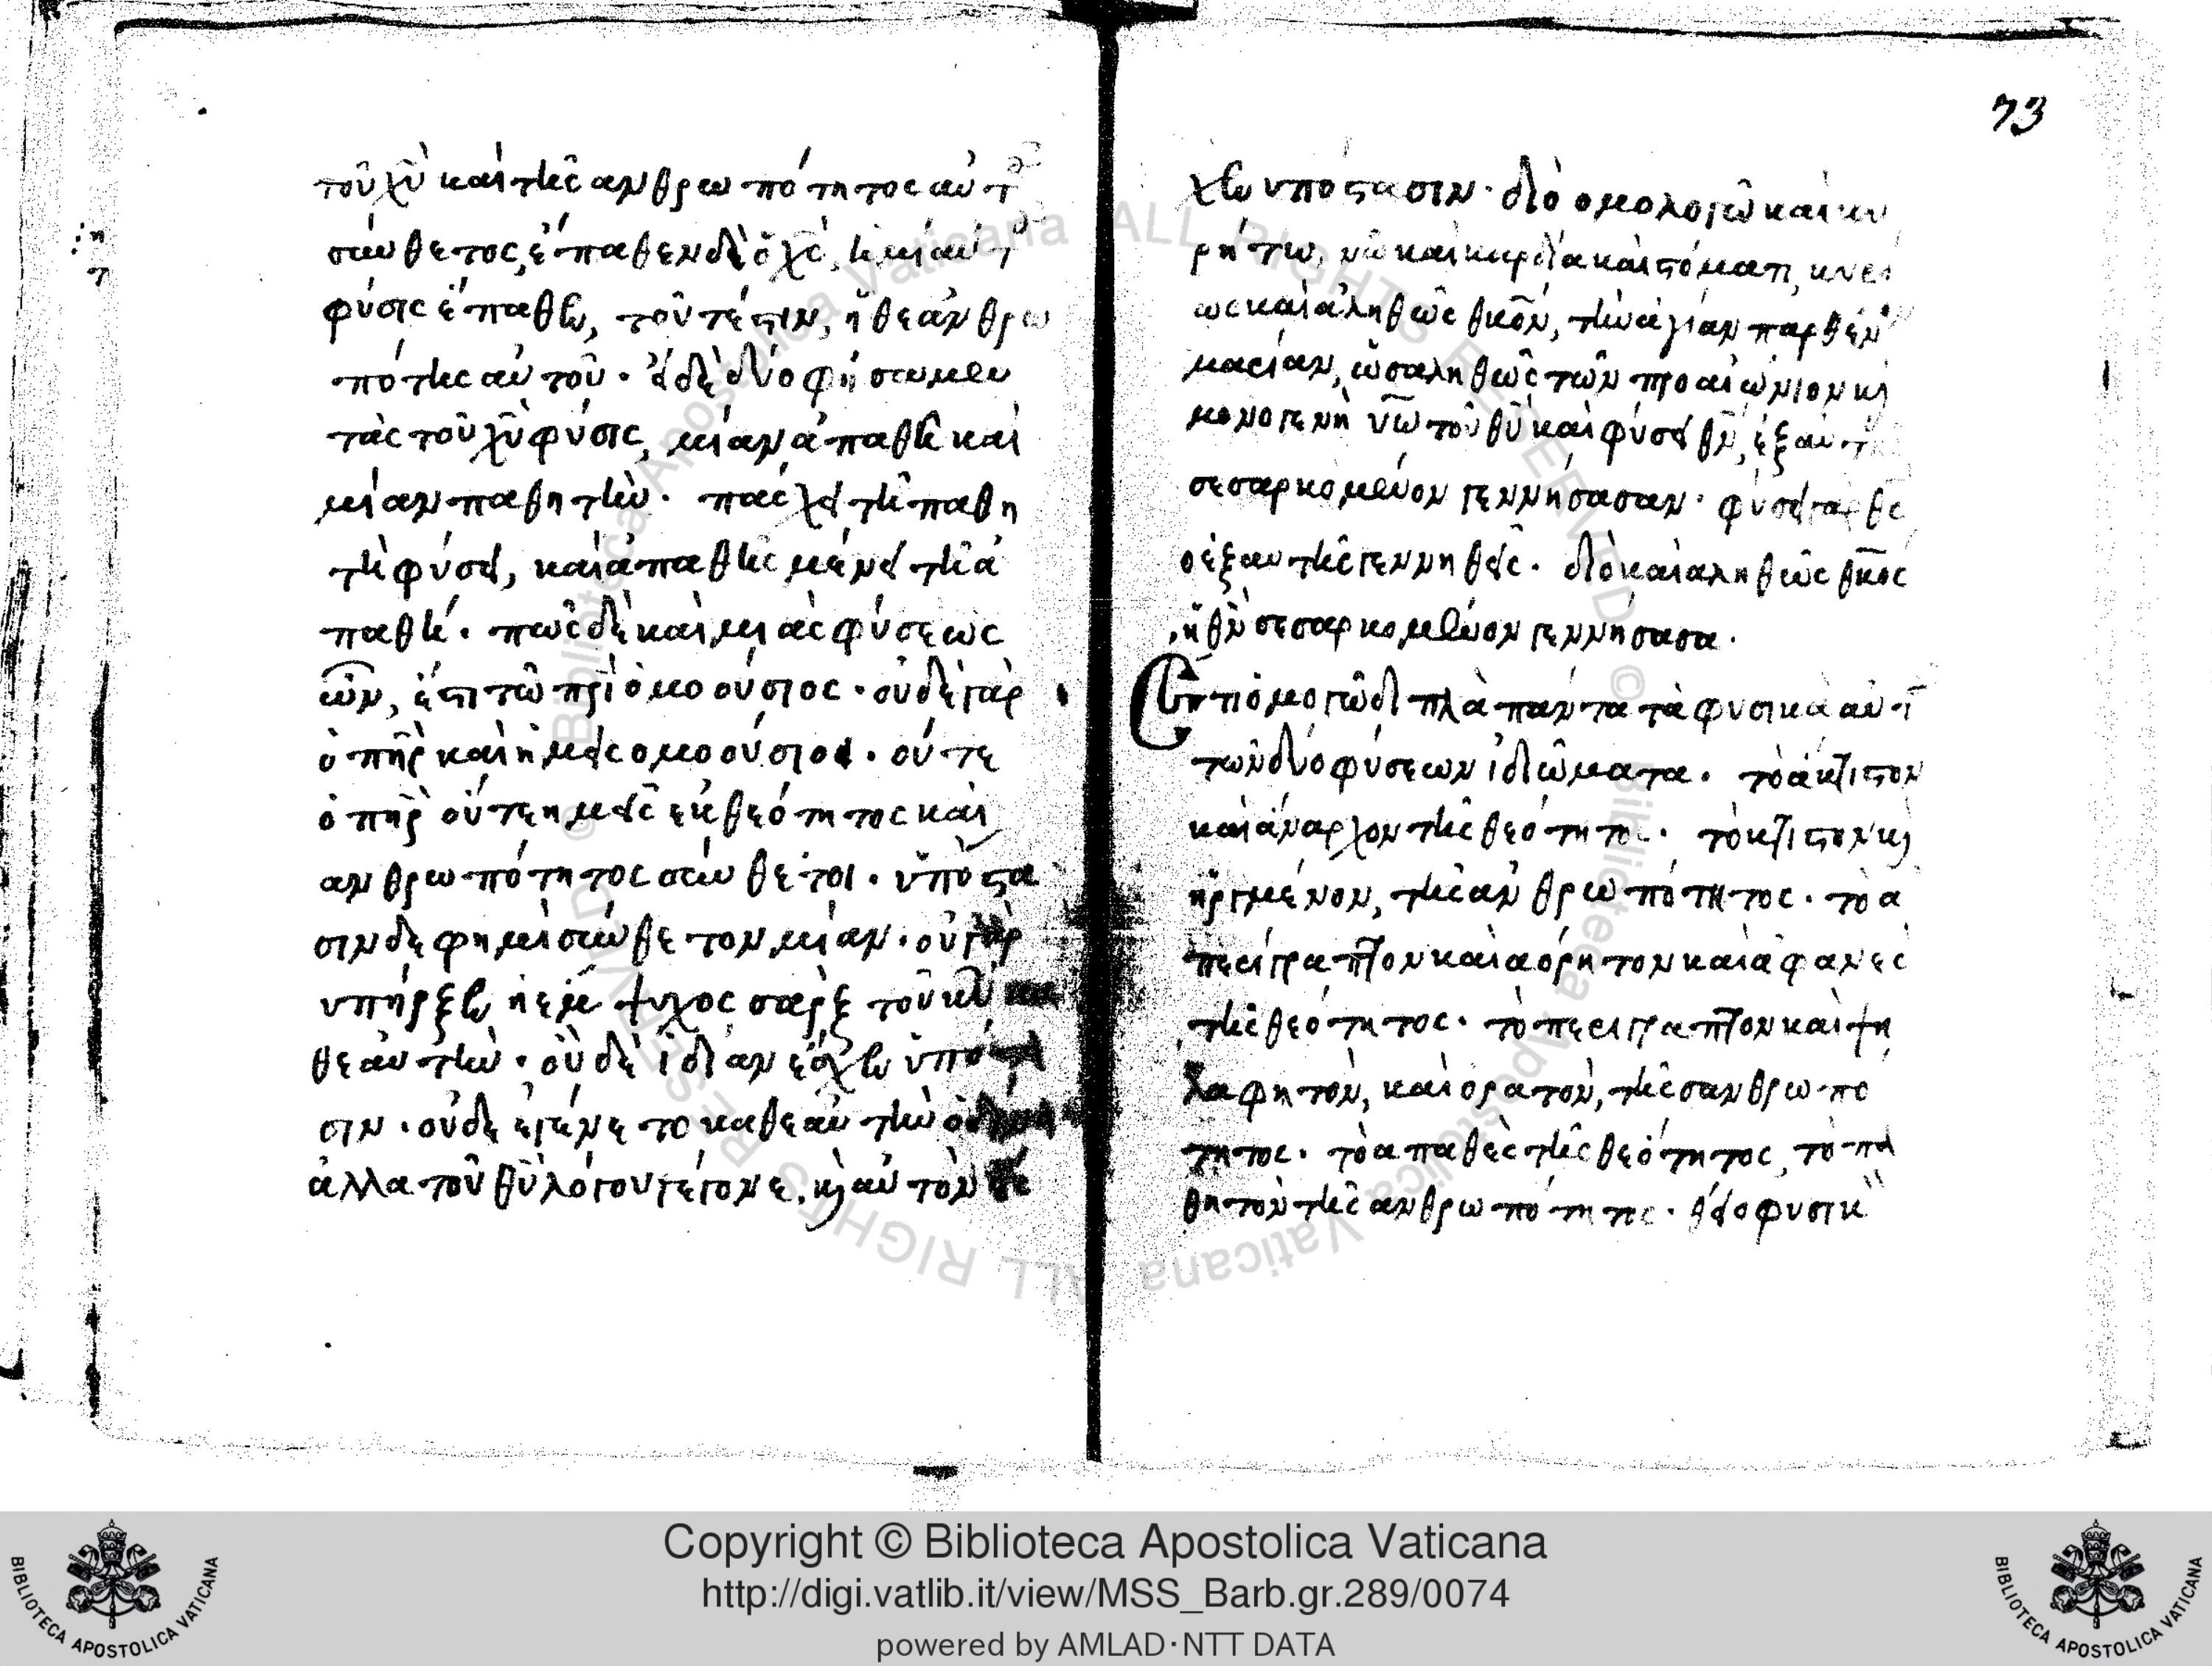 τοῦ χῦ καὶ τῆς ανθρωπότητος αὐτ
σύνθετος, ἔπαθεν δὲ ὁ χς, ἡ μία αὐτ
φύσις ἔπαθεν, τοῦτέστιν, ἡ θεάνθρω
πότης αὐτοῦ· δύο φήσωμεν
τὰς τοῦ χῦ φύσις, μίαν ἀπαθῆ καὶ
μίαν παθητὴν· πάσχει τῆ παθη
τῆ φύσει, καὶ ἀπαθὴς μένει τῆ ἀ
παθεῖ· πῶς δὲ καὶ μιᾶς φύσεως
ὢν, ἔστι τῶ πρὶ ὁμοούσιος· οὐδὲ γὰρ
ὁ πηρ καὶ ἡμεῖς ομοούσιοι· οὔτε
ὁ πηρ οὔτε ημεῖς ἐκ θεότητος καὶ
ανθρωπότητος σύνθετοι· ὑπόστα
σιν δε φημὶ σύνθετον μίαν· οὐ γὰρ
υπῆρξεν ἡ ἔμψυχος σὰρξ τοῦ κῦ
θεαυτὴν· οὐδὲ ἰδίαν ἔσχεν ὑπόστα
σιν· οὐδε ἐγένετο καθεαὐτὴν
ἀλλα τοῦ θῦ λόγου γέγονε, κ αὐτὸν
73
χεν υπόστασιν· διὸ ομολογῶ καὶ κη
ρήτω, νῶ καὶ καρδία καὶ στόματι, κυρί
ως καὶ ἀληθῶς θκον, τὴν ἁγίαν παρθέν
μαρίαν, ὡς αληθῶς τῶν προαιώνιον κ
μονογενῆ υν τοῦ θῦ καὶ φύσει θν, ἐξ αὐτ
σεσαρκομένον γεννήσασαν· φύσει γαρ θς
ο ἐξ αυτῆς γεννηθείς· διὸ καὶ αληθῶς θκος
ἡ θν σεσαρκομένον γεννήσασα.
Ἔτι ὁμογῶ διπλὰ πάντα τὰ φυσικὰ αὐτ
τῶν δύο φύσεων ἰδιώματα· τὸ ἄκτιστον
καὶ ἄναρχον τῆς θεότητος· τὸ κτιστον κ
ἠργμένον, τῆς ἀνθρωπότητος· τὸ α
περίγραπτον καὶ αόρητον καὶ ἀφανὲς
τῆς θεότητος· τὸ περιγραπτον καὶ ψη
λαφητὸν, καὶ ορατὸν, τῆς ανθρωπο
τητος· τὸ απαθὲς τῆς θεότητος, τὸ πα
θητὸν τῆς ανθρωπότητος· φυσικ
Copyright © Biblioteca Apostolica Vaticana
http://digi.vatlib.it/view/MSS_Barb.gr.289/0074
powered by AMLAD·NTT DATA
BIBLIOTECA APOSTOLICA VATICANA
BIBLIOTECA APOSTOLICA VATICANA